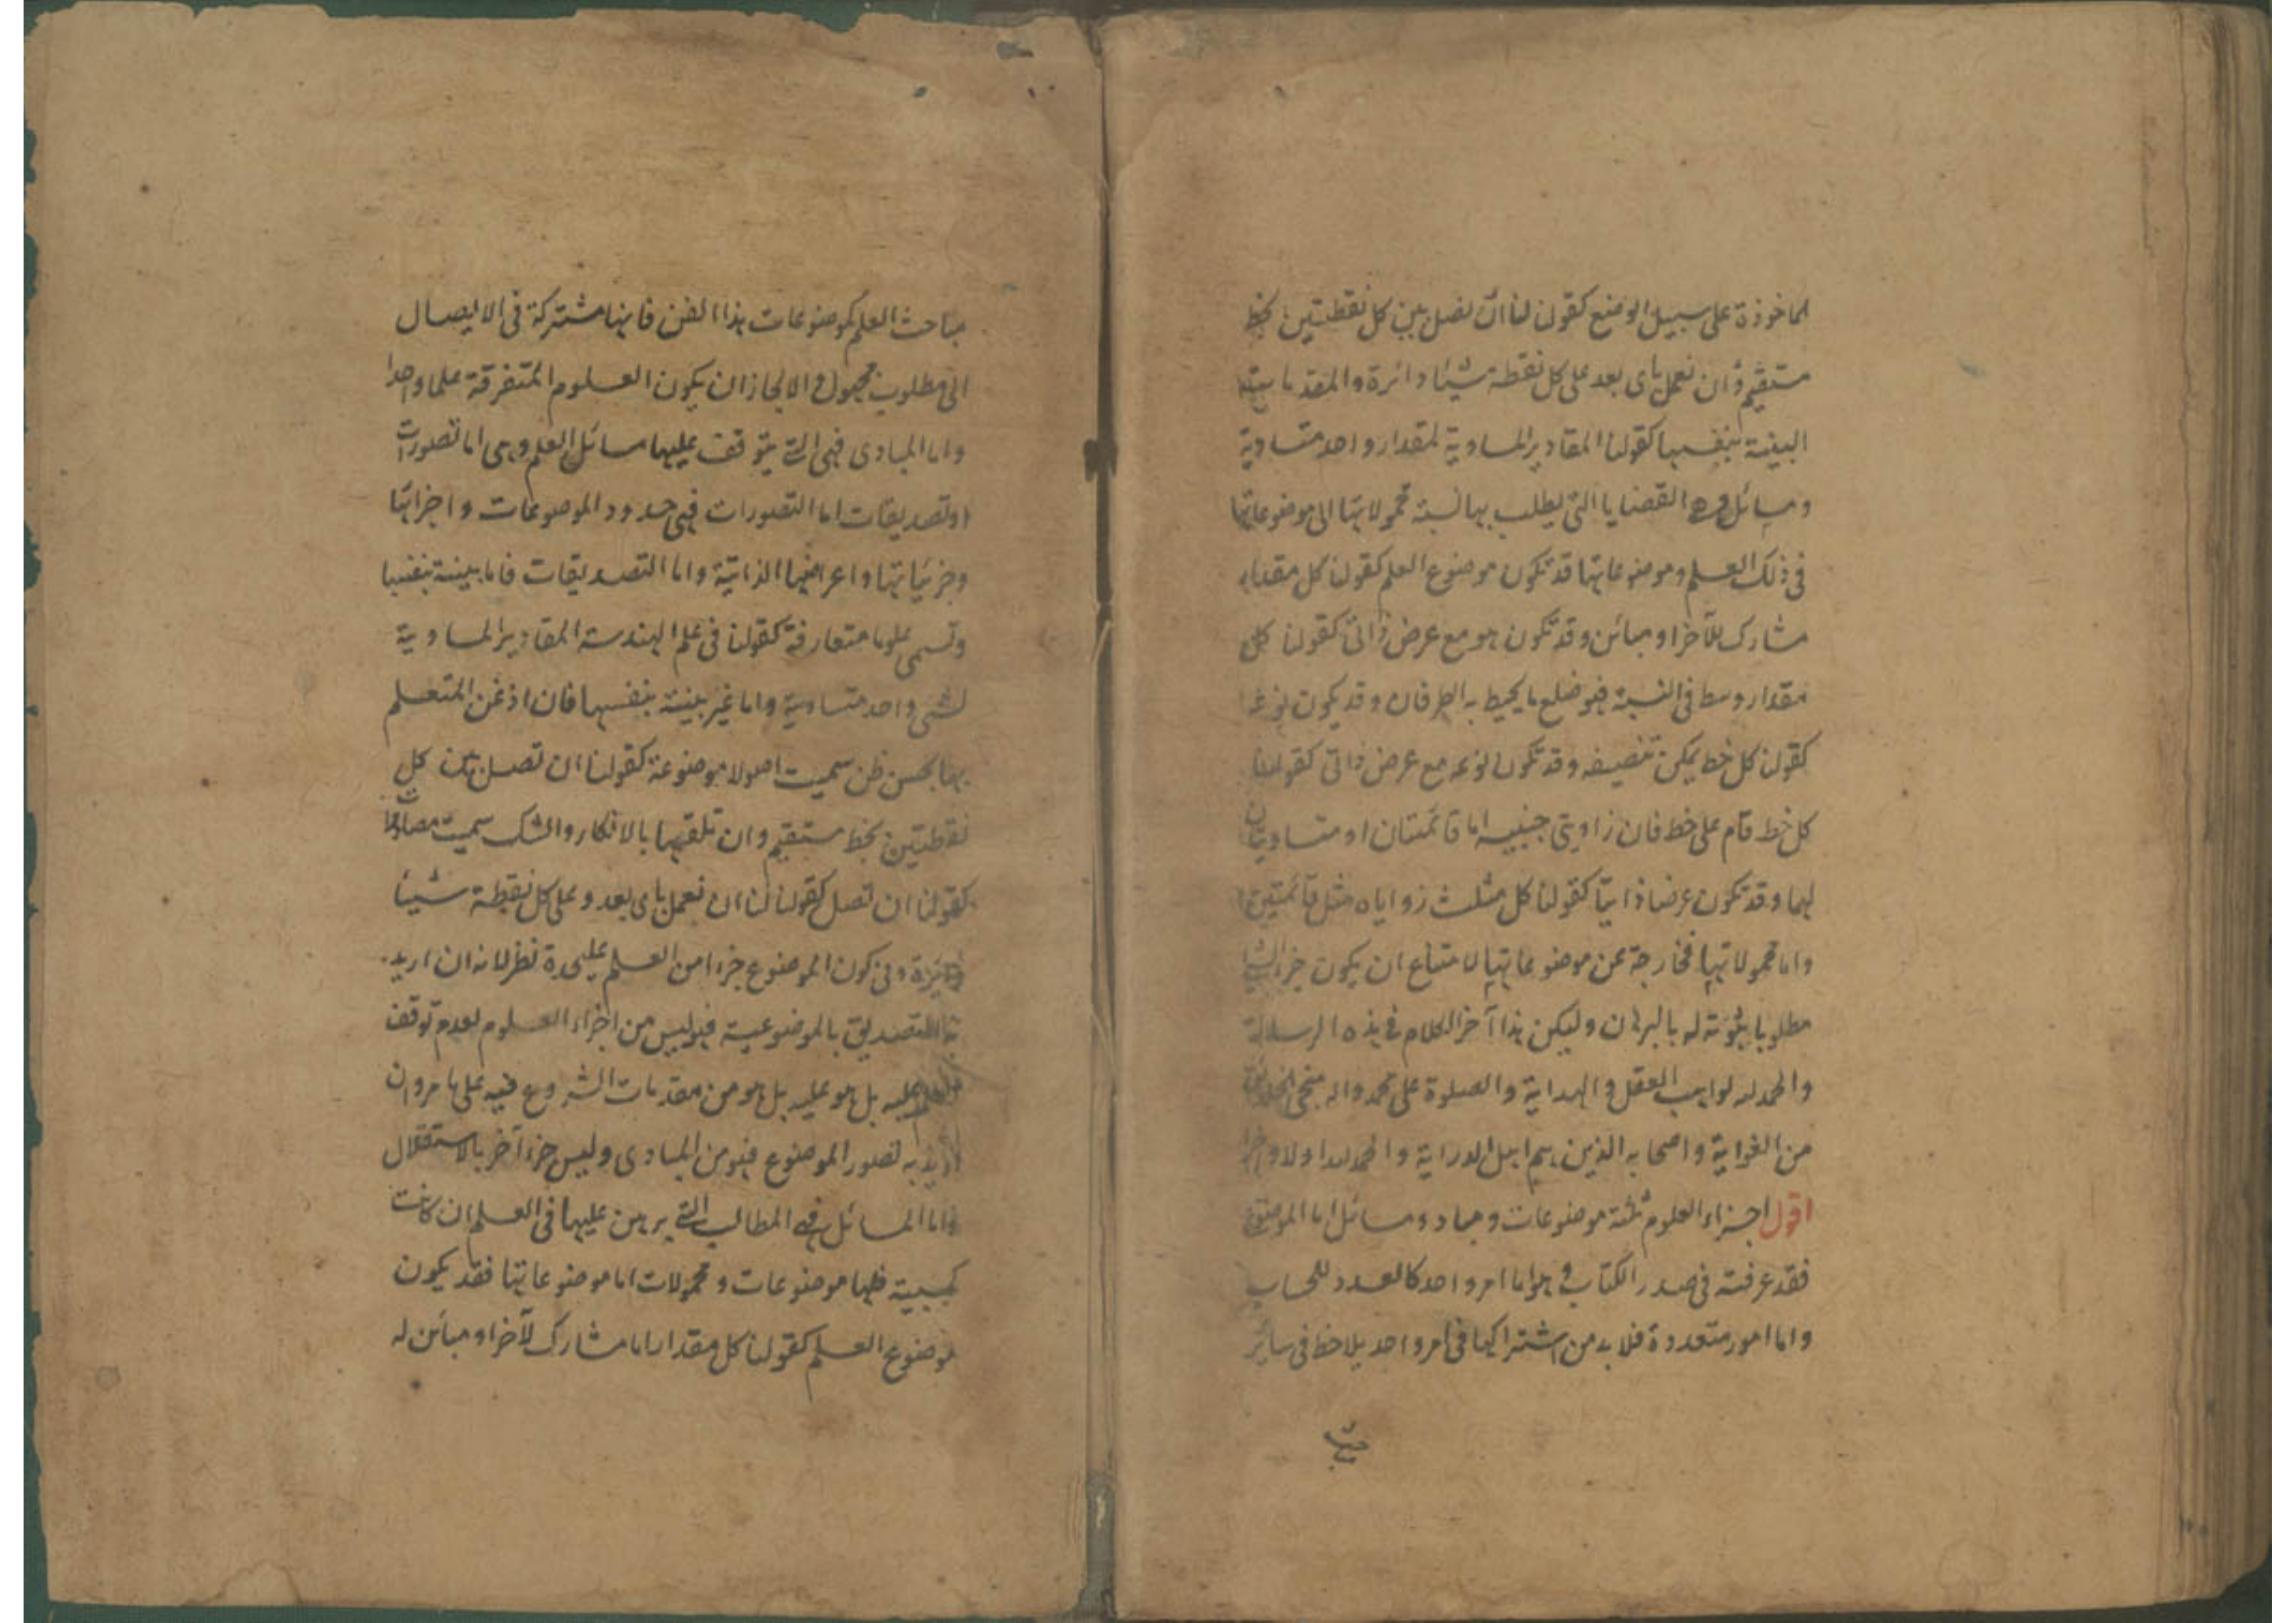 الماخوذة على سبيل الوضع كقولنا لنا ان نصل بين كل نقطتين بخط
مستقيم وان نعمل باى بعد على كل نقطة شئنا دائرة والمقدمات
البينة بنفسها كقولنا المقادير المساوية لمقدار واحد متساوية
ومسائل وهى القضايا التى يطلب بها نسبة محمولاتها الى موضوعاتها
فى ذلك العلم وموضوعاتها قد تكون موضوع العلم كقولنا كل مقدار
مشارك للآخر او مبائن وقد تكون هو مع عرض ذاتى كقولنا كل
مقدار وسط فى النسبة فهو ضلع ما يحيط به الطرفان وقد يكون نوعه
كقولنا كل خط يمكن تنصيفه وقد تكون نوعه مع عرض ذاتى كقولنا
كل خط قام على خط فان زاويتى جنبيه اما قائمتان او متساويتان
لهما وقد تكون عرضا ذاتيا كقولنا كل مثلث زواياه مثل قائمتين
واما محمولاتها فخارجة عن موضوعاتها لامتناع ان يكون جزء الشئ
مطلوبا بثوته له بالبرهان وليكن هذا آخر الكلام فى هذه الرسالة
والحمد لله لواهب العقل والهداية والصلوة على محمد واله منجى الخلائق
من الغواية واصحابه الذين هم اهل الدراية والحمد لله اولا واخرا
اقول اجزاء العلوم ثلثة موضوعات ومباد ومسائل اما الموضوع
فقد عرفته فى صدر الكتاب وهو اما امر واحد كالعدد للحساب
واما امور متعددة فلا بد من اشتراكها فى امر واحد يلاحظ فى سائر
مباحث العلم كموضوعات هذا الفن فانها مشتركة فى الايصال
الى مطلوب مجهول والا لجاز ان يكون العلوم المتفرقة علما واحدا
واما المبادى فهى التى يتوقف عليها مسائل العلم وهى اما تصورات
او تصديقات اما التصورات فهى حدود الموضوعات واجزائها
وجزئياتها واعراضها الذاتية واما التصديقات فاما بينة بنفسها
وتسمى علوما متعارفة كقولنا فى علم الهندسة المقادير المساوية
لشئ واحد متساوية واما غير بينة بنفسها فان اذعن المتعلم
بها بحسن ظن سميت اصولا موضوعة كقولنا ان نصل بين كل
نقطتين بخط مستقيم وان تلقيها بالانكار والشك سميت مصادرات
كقولنا ان نصل كقولنا لنا ان نعمل باى بعد وعلى كل نقطة شئنا
دائرة وفى كون الموضوع جزءا من العلم عليحدة نظر لانه ان اريد
به التصديق بالموضوعية فهو ليس من اجزاء العلوم لعدم توقف
العلم عليه بل هو عليه بل هو من مقدمات الشروع فيه على ما مر وان
اريد به تصور الموضوع فهو من المبادى وليس جزءا آخر بالاستقلال
واما المسائل فهى المطالب التى يبرهن عليها فى العلم ان كانت
كسبية فلها موضوعات ومحمولات اما موضوعاتها فقد يكون
موضوع العلم كقولنا كل مقدار اما مشارك لآخر او مبائن له